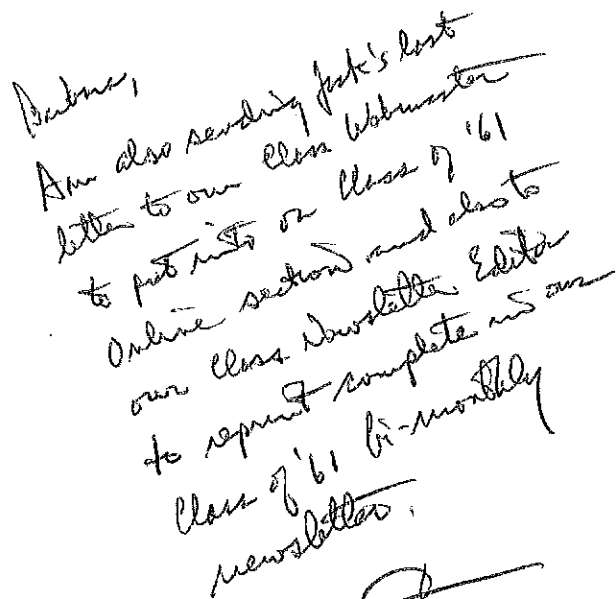 Barbara,
Am also sending Jack's last
letter to our Class Webmaster
to put into our Class of '61
Online section and also to
our Class Newsletter Editor
to reprint complete in our
Class of '61 bi-monthly
newsletter.